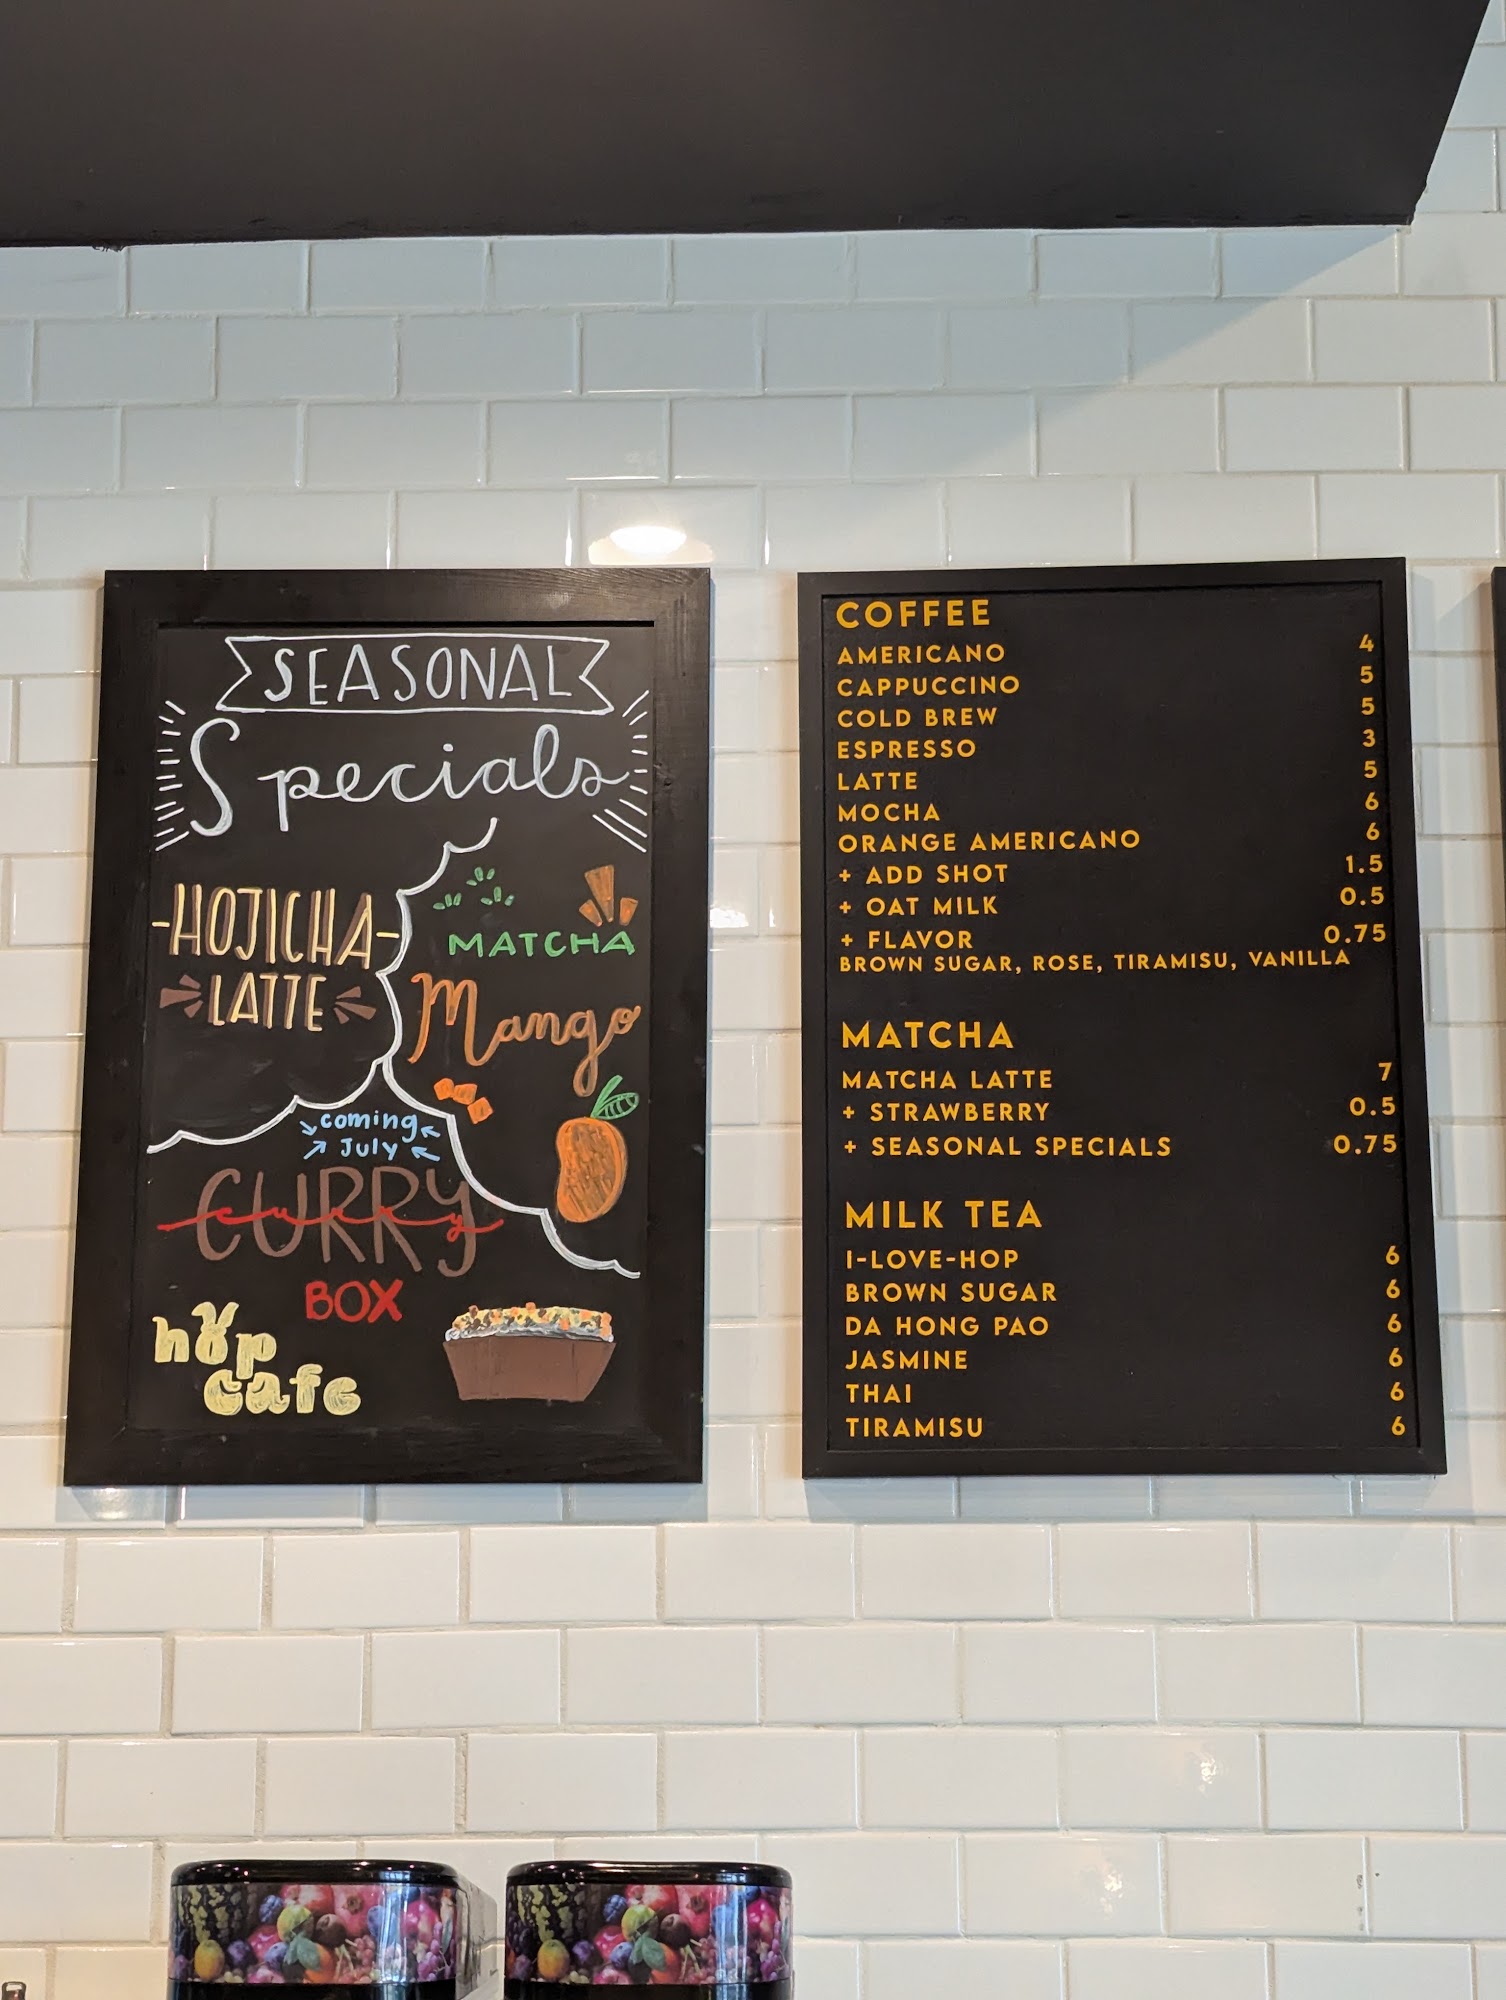 SEASONAL
Specials
-HOJICHA-
LATTE
MATCHA
Mango
coming
July
CURRY
curry
BOX
hop
cafe
COFFEE
AMERICANO 4
CAPPUCCINO 5
COLD BREW 5
ESPRESSO 3
LATTE 5
MOCHA 6
ORANGE AMERICANO 6
+ ADD SHOT 1.5
+ OAT MILK 0.5
+ FLAVOR 0.75
BROWN SUGAR, ROSE, TIRAMISU, VANILLA
MATCHA
MATCHA LATTE 7
+ STRAWBERRY 0.5
+ SEASONAL SPECIALS 0.75
MILK TEA
I-LOVE-HOP 6
BROWN SUGAR 6
DA HONG PAO 6
JASMINE 6
THAI 6
TIRAMISU 6